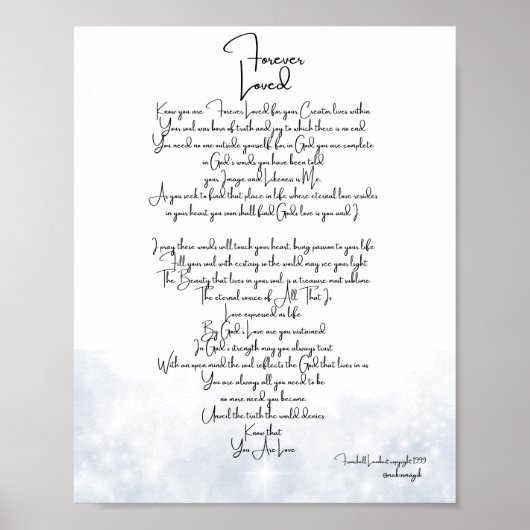 Forever
Loved
Know you are Forever Loved for your Creator lives within
Your soul was born of truth and joy to which there is no end.
You need no one outside yourself, for in God you are complete
in God's words you have been told
your Image and Likeness is Me.
As you seek to find that place in life where eternal love resides
in your heart you soon shall find God's love is you and I.
I pray these words will touch your heart, bring passion to your life
Fill your soul with ecstasy so the world may see your light
The Beauty that lives in your soul, is a treasure most sublime
The eternal source of All That Is
Love expressed as life.
By God's Love are you sustained
In God's strength may you always trust
With an open mind the soul reflects the God that lives in us
You are always all you need to be
no more need you become
Unveil the truth the world denies
Know that
You Are Love
copyright 1999